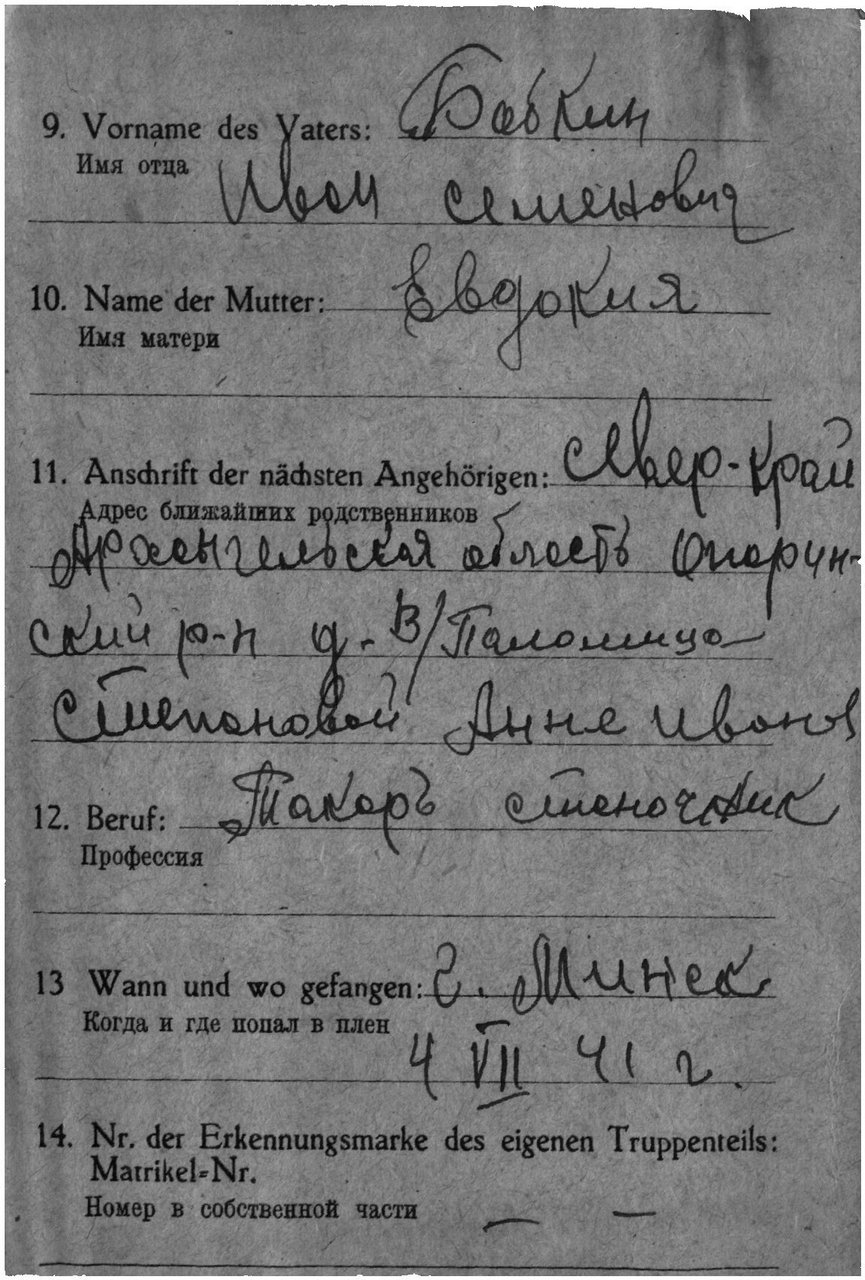 9. Vorname des Vaters: Бабкин
Имя отца
Иван семенович
10. Name der Mutter: Евдокия
Имя матери
11. Anschrift der nächsten Angehörigen: север-край
Адрес ближайших родственников
Архангельская область Опарин-
ский р-н д. В/Паломица
Степановой Анне Иванов
12. Beruf: Такарь станочник
Профессия
13 Wann und wo gefangen: г. Минск
Когда и где попал в плен
4 VII 41 г.
14. Nr. der Erkennungsmarke des eigenen Truppenteils:
Matrikel=Nr.
Номер в собственной части — —